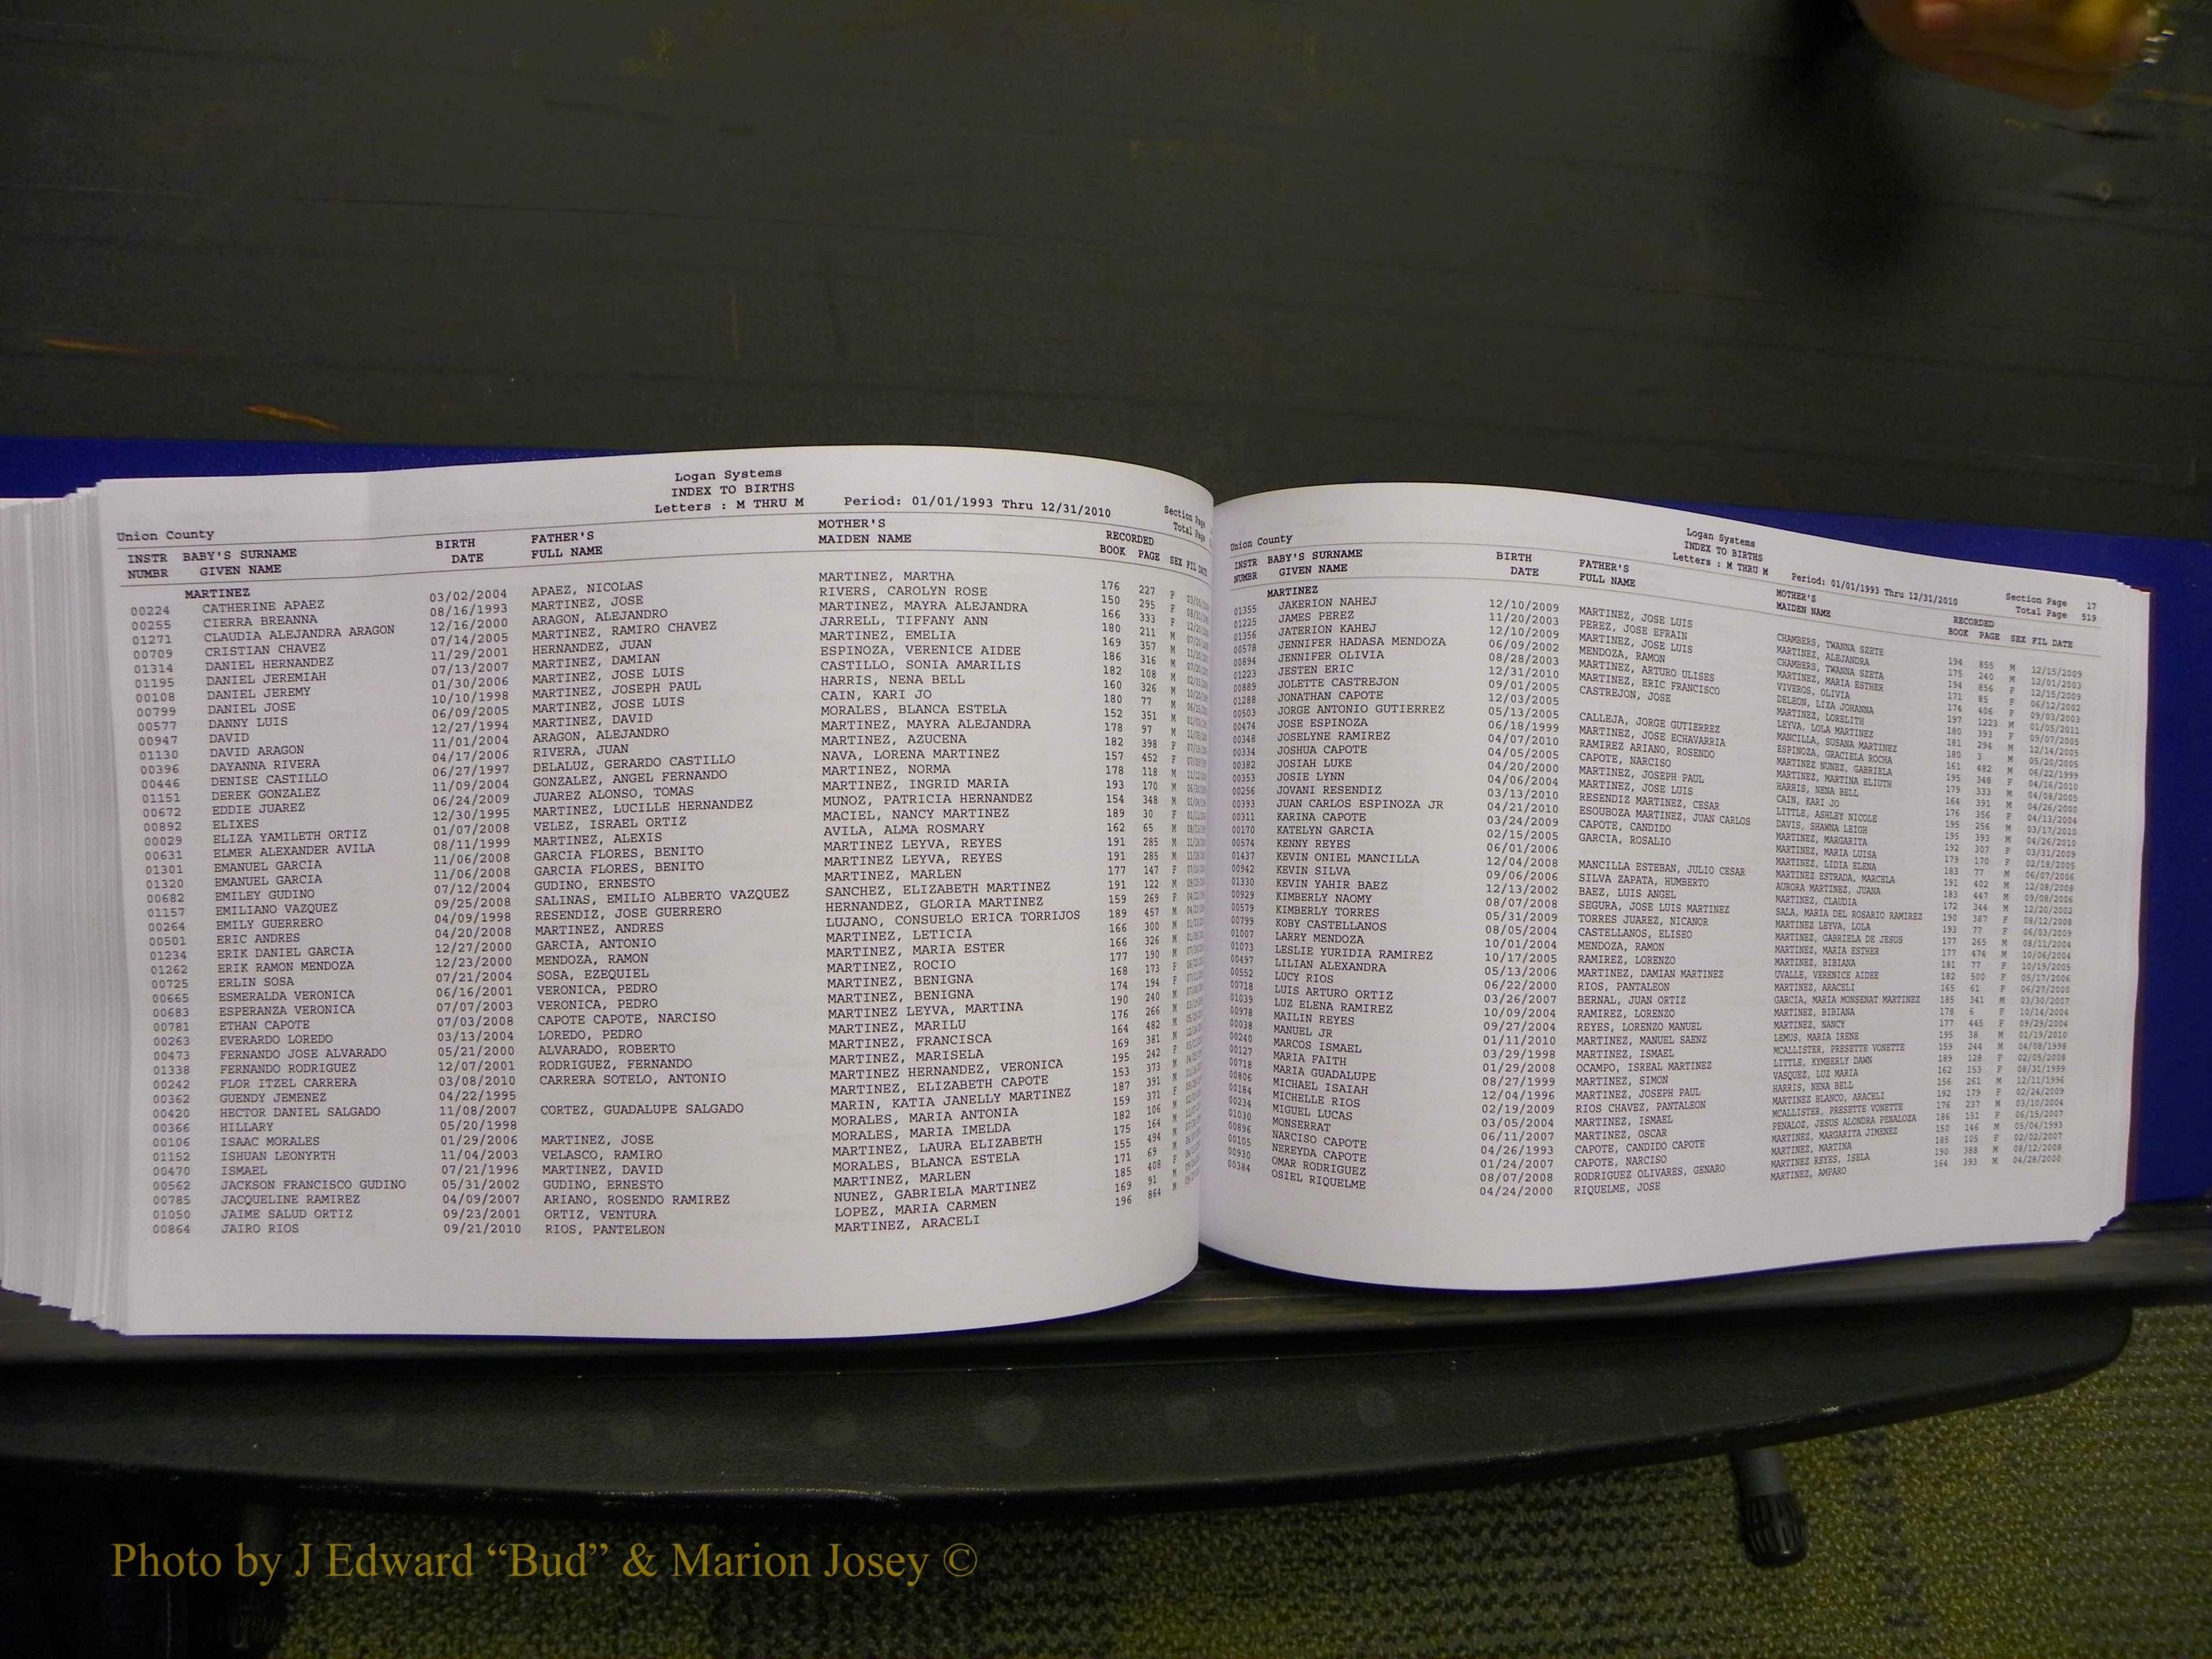 Logan Systems
INDEX TO BIRTHS
Letters : M THRU M Period: 01/01/1993 Thru 12/31/2010
Section Page
Total Page
Union County
INSTR BABY'S SURNAME BIRTH FATHER'S MOTHER'S RECORDED
NUMBR GIVEN NAME DATE FULL NAME MAIDEN NAME BOOK PAGE SEX FIL DATE
MARTINEZ
00224 CATHERINE APAEZ 03/02/2004 APAEZ, NICOLAS MARTINEZ, MARTHA 176 227 F
00255 CIERRA BREANNA 08/16/1993 MARTINEZ, JOSE RIVERS, CAROLYN ROSE 150 295 F
01271 CLAUDIA ALEJANDRA ARAGON 12/16/2000 ARAGON, ALEJANDRO MARTINEZ, MAYRA ALEJANDRA 166 333 F
00709 CRISTIAN CHAVEZ 07/14/2005 MARTINEZ, RAMIRO CHAVEZ JARRELL, TIFFANY ANN 180 211 M
01314 DANIEL HERNANDEZ 11/29/2001 HERNANDEZ, JUAN MARTINEZ, EMELIA 169 357 M
01195 DANIEL JEREMIAH 07/13/2007 MARTINEZ, DAMIAN ESPINOZA, VERENICE AIDEE 186 316 M
00108 DANIEL JEREMY 01/30/2006 MARTINEZ, JOSE LUIS CASTILLO, SONIA AMARILIS 182 108 M
00799 DANIEL JOSE 10/10/1998 MARTINEZ, JOSEPH PAUL HARRIS, NENA BELL 160 326 M
00577 DANNY LUIS 06/09/2005 MARTINEZ, JOSE LUIS CAIN, KARI JO 180 77 M
00947 DAVID 12/27/1994 MARTINEZ, DAVID MORALES, BLANCA ESTELA 152 351 M
01130 DAVID ARAGON 11/01/2004 ARAGON, ALEJANDRO MARTINEZ, MAYRA ALEJANDRA 178 97 M
00396 DAYANNA RIVERA 04/17/2006 RIVERA, JUAN MARTINEZ, AZUCENA 182 398 F
00446 DENISE CASTILLO 06/27/1997 DELALUZ, GERARDO CASTILLO NAVA, LORENA MARTINEZ 157 452 F
01151 DEREK GONZALEZ 11/09/2004 GONZALEZ, ANGEL FERNANDO MARTINEZ, NORMA 178 118 M
00672 EDDIE JUAREZ 06/24/2009 JUAREZ ALONSO, TOMAS MARTINEZ, INGRID MARIA 193 170 M
00892 ELIXES 12/30/1995 MARTINEZ, LUCILLE HERNANDEZ MUNOZ, PATRICIA HERNANDEZ 154 348 M
00029 ELIZA YAMILETH ORTIZ 01/07/2008 VELEZ, ISRAEL ORTIZ MACIEL, NANCY MARTINEZ 189 30 F
00631 ELMER ALEXANDER AVILA 08/11/1999 MARTINEZ, ALEXIS AVILA, ALMA ROSMARY 162 65 M
01301 EMANUEL GARCIA 11/06/2008 GARCIA FLORES, BENITO MARTINEZ LEYVA, REYES 191 285 M
01320 EMANUEL GARCIA 11/06/2008 GARCIA FLORES, BENITO MARTINEZ LEYVA, REYES 191 285 M
00682 EMILEY GUDINO 07/12/2004 GUDINO, ERNESTO MARTINEZ, MARLEN 177 147 F
01157 EMILIANO VAZQUEZ 09/25/2008 SALINAS, EMILIO ALBERTO VAZQUEZ SANCHEZ, ELIZABETH MARTINEZ 191 122 M
00264 EMILY GUERRERO 04/09/1998 RESENDIZ, JOSE GUERRERO HERNANDEZ, GLORIA MARTINEZ 159 269 F
00501 ERIC ANDRES 04/20/2008 MARTINEZ, ANDRES LUJANO, CONSUELO ERICA TORRIJOS 189 457 M
01234 ERIK DANIEL GARCIA 12/27/2000 GARCIA, ANTONIO MARTINEZ, LETICIA 166 300 M
01262 ERIK RAMON MENDOZA 12/23/2000 MENDOZA, RAMON MARTINEZ, MARIA ESTER 166 326 M
00725 ERLIN SOSA 07/21/2004 SOSA, EZEQUIEL MARTINEZ, ROCIO 177 190 M
00665 ESMERALDA VERONICA 06/16/2001 VERONICA, PEDRO MARTINEZ, BENIGNA 168 173 F
00683 ESPERANZA VERONICA 07/07/2003 VERONICA, PEDRO MARTINEZ, BENIGNA 174 194 F
00781 ETHAN CAPOTE 07/03/2008 CAPOTE CAPOTE, NARCISO MARTINEZ LEYVA, MARTINA 190 240 M
00263 EVERARDO LOREDO 03/13/2004 LOREDO, PEDRO MARTINEZ, MARILU 176 266 M
00473 FERNANDO JOSE ALVARADO 05/21/2000 ALVARADO, ROBERTO MARTINEZ, FRANCISCA 164 482 M
01338 FERNANDO RODRIGUEZ 12/07/2001 RODRIGUEZ, FERNANDO MARTINEZ, MARISELA 169 381 M
00242 FLOR ITZEL CARRERA 03/08/2010 CARRERA SOTELO, ANTONIO MARTINEZ HERNANDEZ, VERONICA 195 242 F
00362 GUENDY JEMENEZ 04/22/1995 MARTINEZ, ELIZABETH CAPOTE 153 373
00420 HECTOR DANIEL SALGADO 11/08/2007 CORTEZ, GUADALUPE SALGADO MARIN, KATIA JANELLY MARTINEZ 187 391 M
00366 HILLARY 05/20/1998 MORALES, MARIA ANTONIA 159 371 F
00106 ISAAC MORALES 01/29/2006 MARTINEZ, JOSE MORALES, MARIA IMELDA 182 106 M
01152 ISHUAN LEONYRTH 11/04/2003 VELASCO, RAMIRO MARTINEZ, LAURA ELIZABETH 175 164 M
00470 ISMAEL 07/21/1996 MARTINEZ, DAVID MORALES, BLANCA ESTELA 155 494 M
00562 JACKSON FRANCISCO GUDINO 05/31/2002 GUDINO, ERNESTO MARTINEZ, MARLEN 171 69 M
00785 JACQUELINE RAMIREZ 04/09/2007 ARIANO, ROSENDO RAMIREZ NUNEZ, GABRIELA MARTINEZ 185 408 F
01050 JAIME SALUD ORTIZ 09/23/2001 ORTIZ, VENTURA LOPEZ, MARIA CARMEN 169 91 M
00864 JAIRO RIOS 09/21/2010 RIOS, PANTELEON MARTINEZ, ARACELI 196 864 M
Logan Systems
INDEX TO BIRTHS
Letters : M THRU M Period: 01/01/1993 Thru 12/31/2010
Section Page 17
Total Page 519
Union County
INSTR BABY'S SURNAME BIRTH FATHER'S MOTHER'S RECORDED
NUMBR GIVEN NAME DATE FULL NAME MAIDEN NAME BOOK PAGE SEX FIL DATE
MARTINEZ
01355 JAKERION NAHEJ 12/10/2009 MARTINEZ, JOSE LUIS CHAMBERS, TWANNA SZETE 194 855 M 12/15/2009
01225 JAMES PEREZ 11/20/2003 PEREZ, JOSE EFRAIN MARTINEZ, ALEJANDRA 175 240 M 12/01/2003
01356 JATERION KAHEJ 12/10/2009 MARTINEZ, JOSE LUIS CHAMBERS, TWANNA SZETA 194 856 F 12/15/2009
00578 JENNIFER HADASA MENDOZA 06/09/2002 MENDOZA, RAMON MARTINEZ, MARIA ESTHER 171 85 F 06/12/2002
00894 JENNIFER OLIVIA 08/28/2003 MARTINEZ, ARTURO ULISES VIVEROS, OLIVIA 174 406 F 09/03/2003
01223 JESTEN ERIC 12/31/2010 MARTINEZ, ERIC FRANCISCO DELEON, LIZA JOHANNA 197 1223 M 01/05/2011
00889 JOLETTE CASTREJON 09/01/2005 CASTREJON, JOSE MARTINEZ, LORELITH 180 393 F 09/07/2005
01288 JONATHAN CAPOTE 12/03/2005 LEYVA, LOLA MARTINEZ 181 294 M 12/14/2005
00503 JORGE ANTONIO GUTIERREZ 05/13/2005 CALLEJA, JORGE GUTIERREZ MANCILLA, SUSANA MARTINEZ 180 3 M 05/20/2005
00474 JOSE ESPINOZA 06/18/1999 MARTINEZ, JOSE ECHAVARRIA ESPINOZA, GRACIELA ROCHA 161 482 M 06/22/1999
00348 JOSELYNE RAMIREZ 04/07/2010 RAMIREZ ARIANO, ROSENDO MARTINEZ NUNEZ, GABRIELA 195 348 F 04/16/2010
00334 JOSHUA CAPOTE 04/05/2005 CAPOTE, NARCISO MARTINEZ, MARTINA ELIUTH 179 333 M 04/08/2005
00382 JOSIAH LUKE 04/20/2000 MARTINEZ, JOSEPH PAUL HARRIS, NENA BELL 164 391 M 04/26/2000
00353 JOSIE LYNN 04/06/2004 MARTINEZ, JOSE LUIS CAIN, KARI JO 176 356 F 04/13/2004
00256 JOVANI RESENDIZ 03/13/2010 RESENDIZ MARTINEZ, CESAR LITTLE, ASHLEY NICOLE 195 256 M 03/17/2010
00393 JUAN CARLOS ESPINOZA JR 04/21/2010 ESQUBOZA MARTINEZ, JUAN CARLOS DAVIS, SHAWNA LEIGH 195 393 M 04/26/2010
00311 KARINA CAPOTE 03/24/2009 CAPOTE, CANDIDO MARTINEZ, MARGARITA 192 307 F 03/31/2009
00170 KATELYN GARCIA 02/15/2005 GARCIA, ROSALIO MARTINEZ, MARIA LUISA 179 170 F 02/18/2005
00574 KENNY REYES 06/01/2006 MARTINEZ, LIDIA ELENA 183 77 M 06/07/2006
01437 KEVIN ONIEL MANCILLA 12/04/2008 MANCILLA ESTEBAN, JULIO CESAR MARTINEZ ESTRADA, MARCELA 191 402 M 12/08/2008
00942 KEVIN SILVA 09/06/2006 SILVA ZAPATA, HUMBERTO AURORA MARTINEZ, JUANA 183 447 M 09/08/2006
01330 KEVIN YAHIR BAEZ 12/13/2002 BAEZ, LUIS ANGEL MARTINEZ, CLAUDIA 172 344 M 12/20/2002
00929 KIMBERLY NAOMY 08/07/2008 SEGURA, JOSE LUIS MARTINEZ SALA, MARIA DEL ROSARIO RAMIREZ 190 387 F 08/12/2008
00579 KIMBERLY TORRES 05/31/2009 TORRES JUAREZ, NICANOR MARTINEZ LEYVA, LOLA 193 77 F 06/03/2009
00799 KOBY CASTELLANOS 08/05/2004 CASTELLANOS, ELISEO MARTINEZ, GABRIELA DE JESUS 177 265 M 08/11/2004
01007 LARRY MENDOZA 10/01/2004 MENDOZA, RAMON MARTINEZ, MARIA ESTHER 177 474 M 10/06/2004
01073 LESLIE YURIDIA RAMIREZ 10/17/2005 RAMIREZ, LORENZO MARTINEZ, BIBIANA 181 77 F 10/19/2005
00497 LILIAN ALEXANDRA 05/13/2006 MARTINEZ, DAMIAN MARTINEZ UVALLE, VERENICE AIDEE 182 500 F 05/17/2006
00552 LUCY RIOS 06/22/2000 RIOS, PANTALEON MARTINEZ, ARACELI 165 61 F 06/27/2000
00718 LUIS ARTURO ORTIZ 03/26/2007 BERNAL, JUAN ORTIZ GARCIA, MARIA MONSENAT MARTINEZ 185 341 M 03/30/2007
01039 LUZ ELENA RAMIREZ 10/09/2004 RAMIREZ, LORENZO MARTINEZ, BIBIANA 178 6 F 10/14/2004
00978 MAILIN REYES 09/27/2004 REYES, LORENZO MANUEL MARTINEZ, NANCY 177 445 F 09/29/2004
00038 MANUEL JR 01/11/2010 MARTINEZ, MANUEL SAENZ LEMUS, MARIA IRENE 195 38 M 01/19/2010
00240 MARCOS ISMAEL 03/29/1998 MARTINEZ, ISMAEL MCALLISTER, PRESETTE VONETTE 159 244 M 04/08/1998
00127 MARIA FAITH 01/29/2008 OCAMPO, ISREAL MARTINEZ LITTLE, KYMBERLY DAWN 189 128 F 02/05/2008
00718 MARIA GUADALUPE 08/27/1999 MARTINEZ, SIMON VASQUEZ, LUZ MARIA 162 153 F 08/31/1999
00806 MICHAEL ISAIAH 12/04/1996 MARTINEZ, JOSEPH PAUL HARRIS, NENA BELL 156 261 M 12/11/1996
00184 MICHELLE RIOS 02/19/2009 RIOS CHAVEZ, PANTALEON MARTINEZ BLANCO, ARACELI 192 179 F 02/24/2009
00234 MIGUEL LUCAS 03/05/2004 MARTINEZ, ISMAEL MCALLISTER, PRESETTE VONETTE 176 237 M 03/10/2004
01030 MONSERRAT 06/11/2007 MARTINEZ, OSCAR PENALOZ, JESUS ALONDRA PENALOZA 186 151 F 06/15/2007
00896 NARCISO CAPOTE 04/26/1993 CAPOTE, CANDIDO CAPOTE MARTINEZ, MARGARITA JIMENEZ 150 146 M 05/04/1993
00105 NEREYDA CAPOTE 01/24/2007 CAPOTE, NARCISO MARTINEZ, MARTINA 185 105 F 02/02/2007
00930 OMAR RODRIGUEZ 08/07/2008 RODRIGUEZ OLIVARES, GENARO MARTINEZ REYES, ISELA 190 388 M 08/12/2008
00384 OSIEL RIQUELME 04/24/2000 RIQUELME, JOSE MARTINEZ, AMPARO 164 393 M 04/28/2000
Photo by J Edward “Bud” & Marion Josey ©